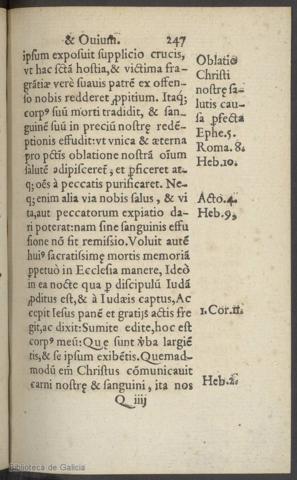 & Ouium. 247
ipsum exposuit supplicio crucis,
vt hac sctā hostia, & victima fra-
grātiæ verè suauis patrē ex offen-
so nobis redderet ꝓpitium. Itaq;
corpꝰ suū morti tradidit, & san_
guinē suū in preciū nostrę redē-
ptionis effudit: vt vnica & æterna
pro pctīs oblatione nostrā oīum
salutē adipisceret, et ꝑficeret at-
q; oēs à peccatis purificaret. Ne-
q; enim alia via nobis salus, & vi
ta, aut peccatorum expiatio da-
ri poterat: nam sine sanguinis effu
sione nō fit remissio. Voluit autē
huiꝰ sacratissimę mortis memoriā
ꝑpetuò in Ecclesia manere, Ideò
in ea nocte qua ꝑ discipulū Iudā
ꝓditus est, & à Iudæis captus, Ac
cepit Iesus panē et gratijs actis fre
git, ac dixit: Sumite edite, hoc est
corpꝰ meū: Quę sunt v̄ba largiē
tis, & se ipsum exibētis. Quemad-
modū em̄ Christus cōmunicauit
carni nostrę & sanguini, ita nos
Q iiij
Oblatio
Christi
nostrę sa-
lutis cau-
sa ꝑfecta
Ephe. 5.
Roma. 8.
Heb. 10.
Acto. 4.
Heb. 9.
1. Cor. 11.
Heb. 2.
Biblioteca de Galicia